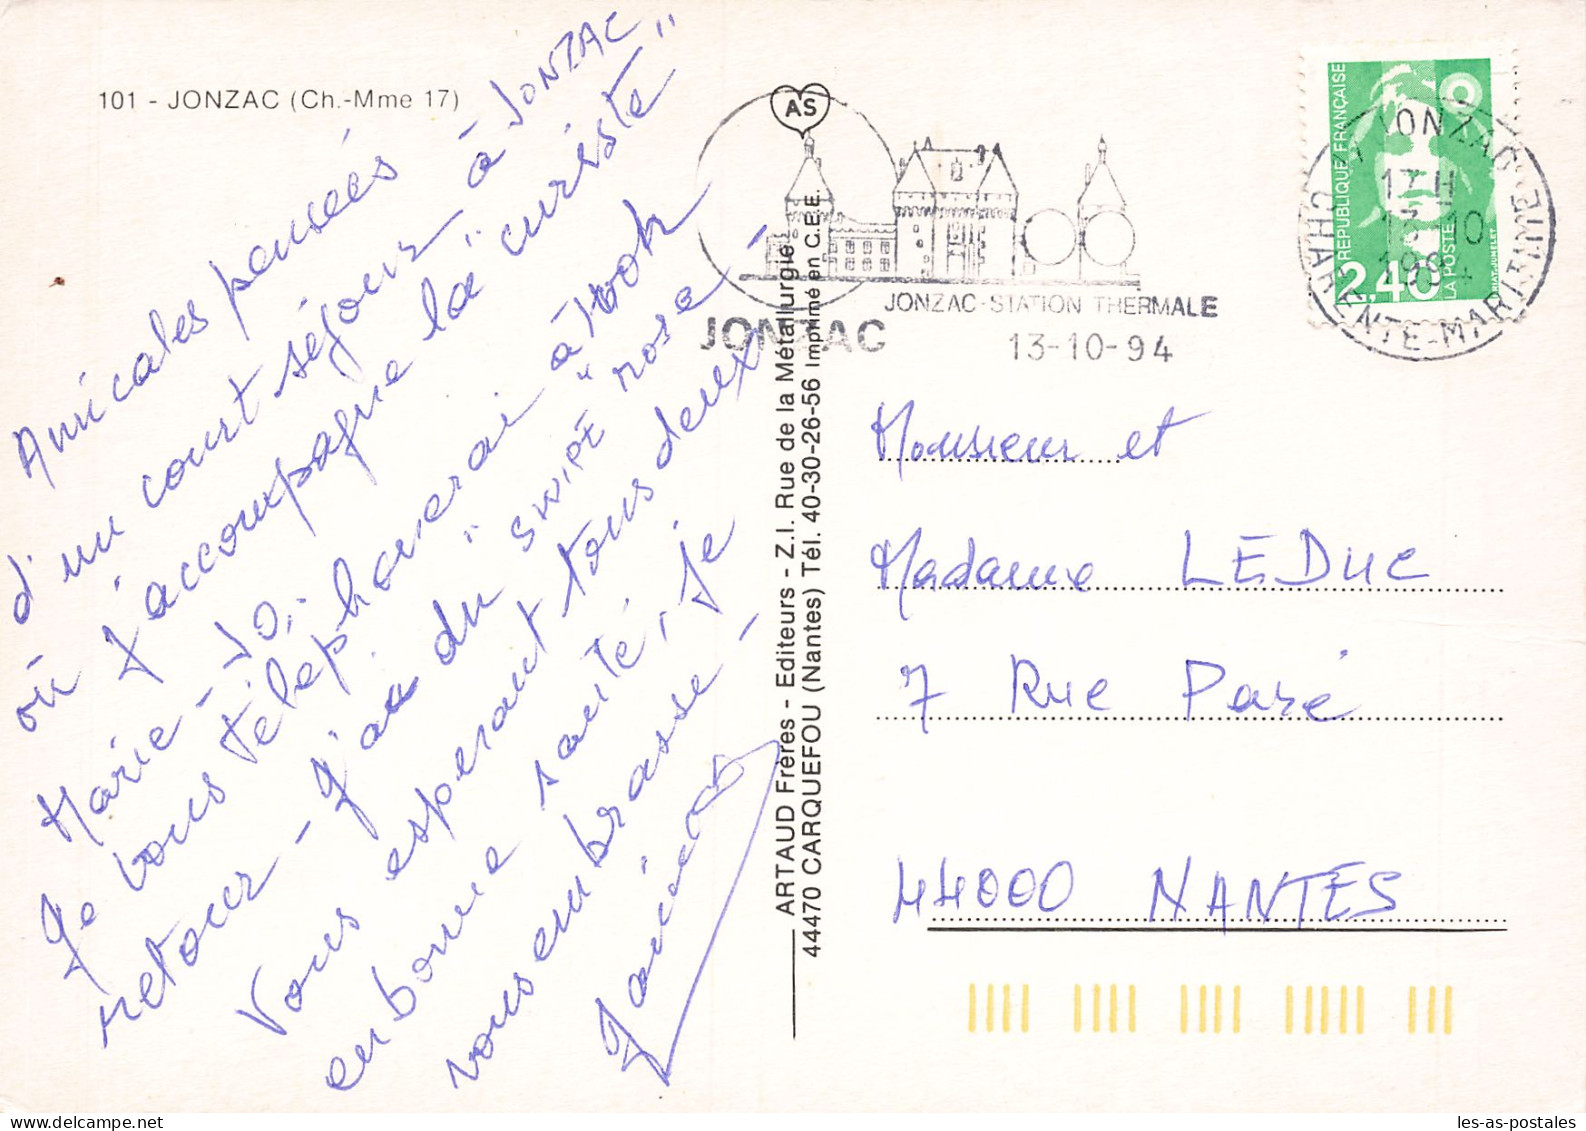 101 - JONZAC (Ch.-Mme 17)
Amicales pensées
d'un court séjour à JONZAC
où j'accompagne la "curiste"
Marie-Jo,
Je vous téléphonerai à mon
retour - J'ai du " " rose -
Vous espérant tous deux
en bonne santé, je
vous embrasse -
AS
JONZAC
JONZAC-STATION THERMALE
13-10-94
JONZAC
17 H
13-10
1994
CHARENTE-MARITIME
RÉPUBLIQUE FRANÇAISE
2,40
LA POSTE
ARTAUD Frères - Editeurs - Z.I. Rue de la Métallurgie
44470 CARQUEFOU (Nantes) Tél. 40-30-26-56 Imprimé en C.E.E.
Monsieur et
Madame LEDUC
7 Rue Paré
44000 NANTES
les-as-postales